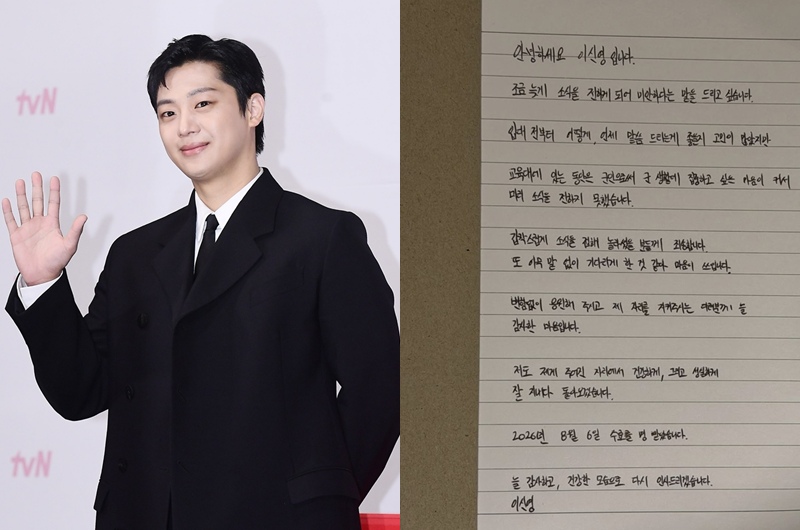 tvN
tvN
안녕하세요 이신영입니다.
조금 늦게 소식을 전하게 되어 미안하다는 말을 드리고 싶습니다.
입대 전부터 어떻게, 언제 말씀 드리는게 좋을지 고민이 많았지만
교육대에 있는 동안은 군인으로서 군 생활에 집중하고 싶은 마음이 커서
미리 소식을 전하지 못했습니다.
갑작스럽게 소식을 접해 놀라셨을 분들께 죄송합니다.
또 아무 말 없이 기다리게 한 것 같아 마음이 쓰입니다.
변함없이 응원해 주시고 제 자리를 지켜주시는 여러분께 늘
감사한 마음입니다.
저도 제게 주어진 자리에서 건강하게, 그리고 성실하게
잘 지내다 돌아오겠습니다.
2026년 8월 6일 수료를 명 받았습니다.
늘 감사하고, 건강한 모습으로 다시 인사드리겠습니다.
이신영